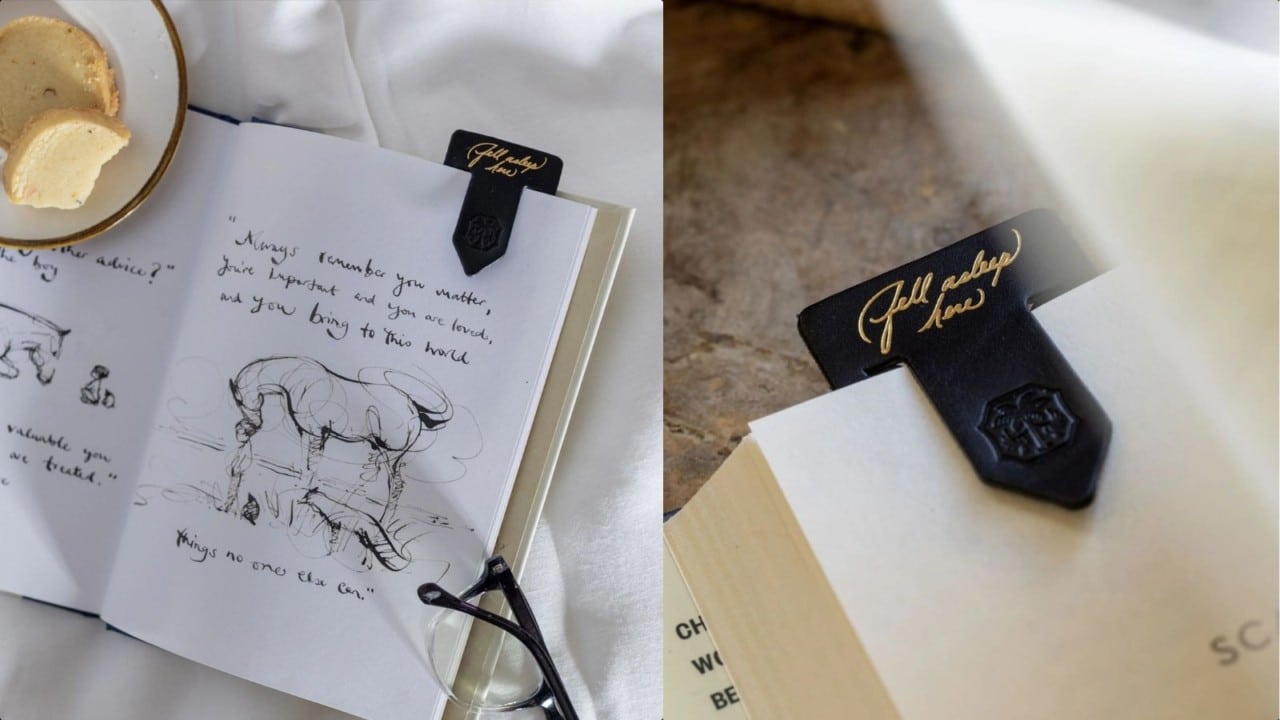 other advice?"
the boy
valuable you
are treated."
Fell asleep
here
"Always remember you matter,
you're important and you are loved,
and you bring to this world
things no one else can."
Fell asleep
here
CH
WO
BE
SC